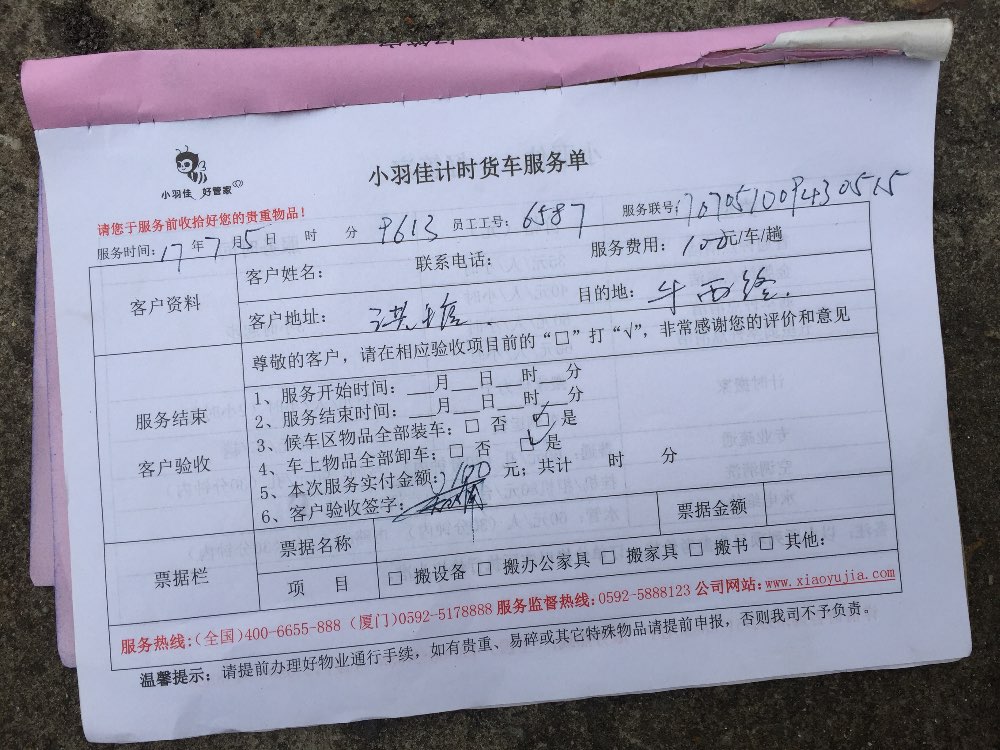 小羽佳 好管家
小羽佳计时货车服务单
请您于服务前收拾好您的贵重物品！
服务时间：17年7月5日 时 分 9613 员工工号：6587 服务联号：170705100943 0515
客户资料
客户姓名： 联系电话： 服务费用：100元/车/趟
客户地址： 目的地：
服务结束
客户验收
尊敬的客户，请在相应验收项目前的“□”打“√”，非常感谢您的评价和意见
1、服务开始时间：___月___日___时___分
2、服务结束时间：___月___日___时___分
3、候车区物品全部装车：□ 否 ☑ 是
4、车上物品全部卸车：□ 否 ☑ 是
5、本次服务实付金额：100元；共计 时 分
6、客户验收签字：
票据栏
票据名称 票据金额
项 目 □ 搬设备 □ 搬办公家具 □ 搬家具 □ 搬书 □ 其他：
服务热线：(全国)400-6655-888 (厦门)0592-5178888 服务监督热线：0592-5888123 公司网站：www.xiaoyujia.com
温馨提示：请提前办理好物业通行手续，如有贵重、易碎或其它特殊物品请提前申报，否则我司不予负责。